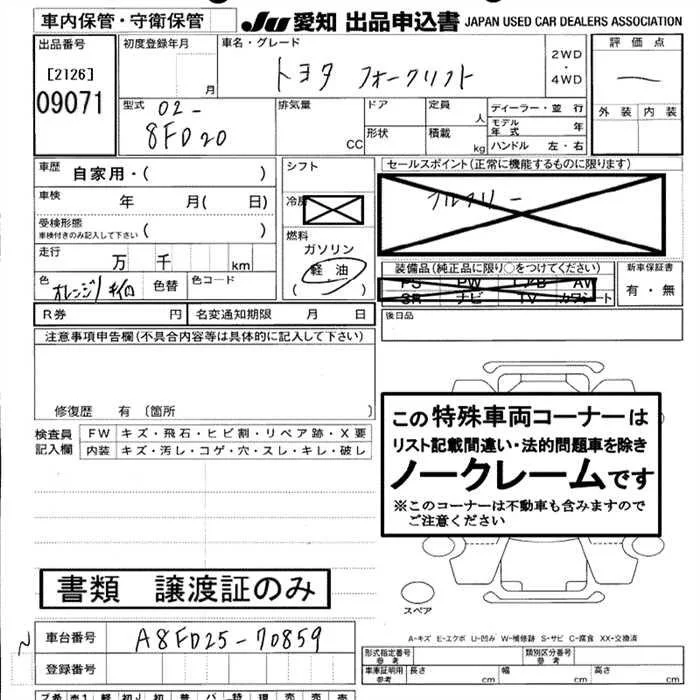 車内保管・守衛保管
JU 愛知 出品申込書 JAPAN USED CAR DEALERS ASSOCIATION
出品番号
[2126]
09071
初度登録年月
月
車名・グレード
トヨタ フォークリフト
2WD
・
4WD
評価点
外装 内装
型式 02-
8FD20
排気量
CC
ドア
形状
定員
人
積載
kg
ディーラー・並 行
モデル年式 年
ハンドル 左・右
車歴 自家用・( )
車検 年 月( 日)
受検形態
車検付きのみ記入して下さい ( )
走行 万 千 km
色 オレンジ/キイロ 色替 色コード
シフト
冷房
燃料
ガソリン
軽 油
( )
セールスポイント(正常に機能するものに限ります)
フルフリー
装備品(純正品に限り○をつけてください)
PS PW エアB AW
SR ナビ TV カワシート
新車保証書
有・無
R券 円 名変通知期限 月 日
後日品
注意事項申告欄(不具合内容等は具体的に記入して下さい)
修復歴 有〔箇所 〕
検査員
記入欄
FW キズ・飛石・ヒビ割・リペア跡・X要
内装 キズ・汚レ・コゲ・穴・スレ・キレ・破レ
この特殊車両コーナーは
リスト記載間違い・法的問題車を除き
ノークレームです
※このコーナーは不動車も含みますので
ご注意ください
書類 譲渡証のみ
スペア
A-キズ E-エクボ U-凹み W-補修跡 S-サビ C-腐食 XX-交換済
車台番号 A8FD25-70859
登録番号
形式指定番号
参考
類別区分番号
参考
車庫証明用
参考
長さ cm 幅 cm 高さ cm